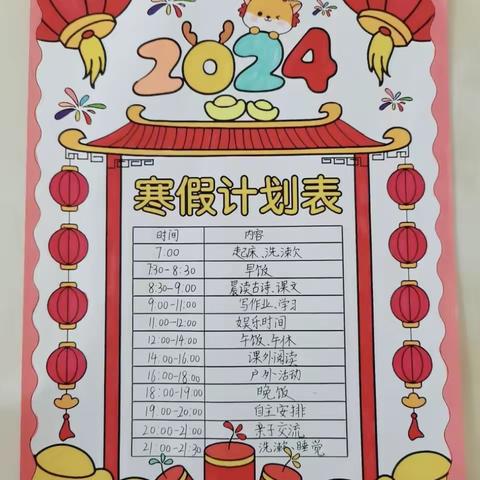 2024
寒假计划表
时间 内容
7:00 起床、洗漱
7:30-8:30 早饭
8:30-9:00 晨读古诗、课文
9:00-11:00 写作业、学习
11:00-12:00 娱乐时间
12:00-14:00 午饭、午休
14:00-16:00 课外阅读
16:00-18:00 户外活动
18:00-19:00 晚饭
19:00-20:00 自主安排
20:00-21:00 亲子交流
21:00-21:30 洗漱、睡觉